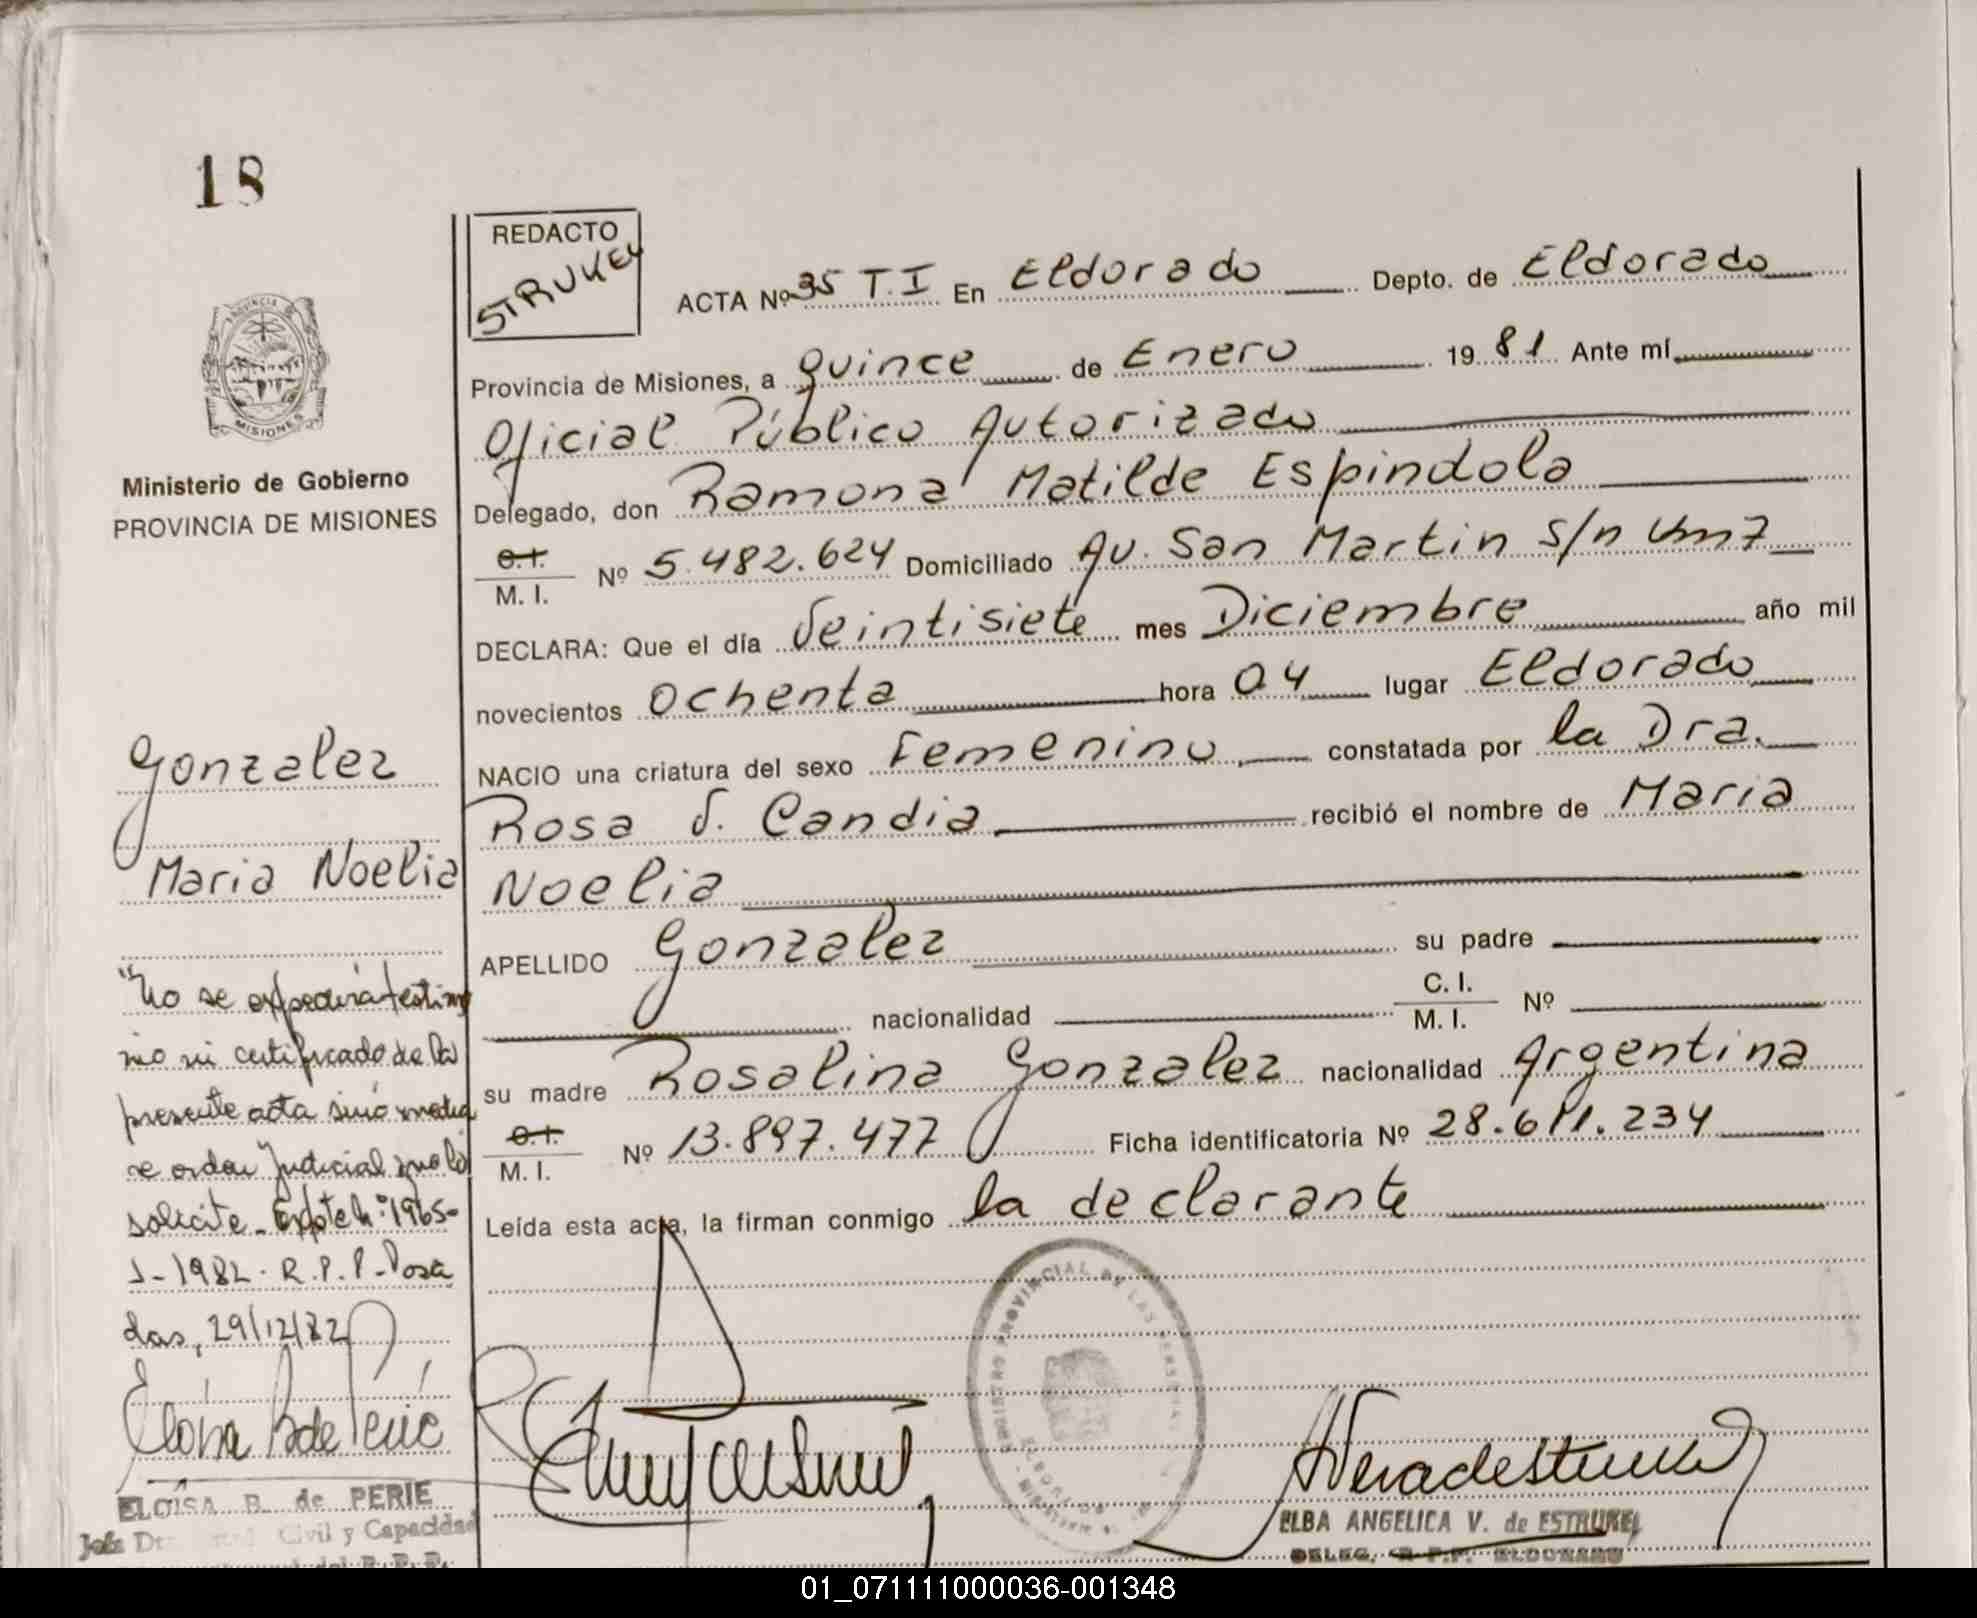 18
PROVINCIA
MISIONES
Ministerio de Gobierno
PROVINCIA DE MISIONES
Gonzalez
Maria Noelia
"No se expedirá testimo
nio ni certificado de la
presente acta sinó media
re orden Judicial que lo
solicite_ Expte n:º 1965-
J-1982. R.P.P_Posa
das, 29/12/82
ELOISA B. de PERIE
Jefe Civil y Capacidad
R. P. P.
REDACTO
STRUKEL
ACTA Nº 35 T.I En Eldorado Depto. de Eldorado
Provincia de Misiones, a quince de Enero 19 81 Ante mí
Oficial Público Autorizado
Delegado, don Ramona Matilde Espindola
C.I. / M. I. Nº 5.482.624 Domiciliado Av. San Martin s/n Km7
DECLARA: Que el día Veintisiete mes Diciembre año mil
novecientos ochenta hora 04 lugar Eldorado
NACIO una criatura del sexo Femenino constatada por la Dra.
Rosa V. Candia recibió el nombre de Maria
Noelia
APELLIDO Gonzalez su padre
nacionalidad C. I. / M. I. Nº
su madre Rosalina Gonzalez nacionalidad Argentina
C.I. / M. I. Nº 13.897.477 Ficha identificatoria Nº 28.611.234
Leída esta acta, la firman conmigo la declarante
REGISTRO PROVINCIAL DE LAS PERSONAS
ELBA ANGELICA V. de ESTRUKEL
DELEG. R.P.P. ELDORADO
01_071111000036-001348